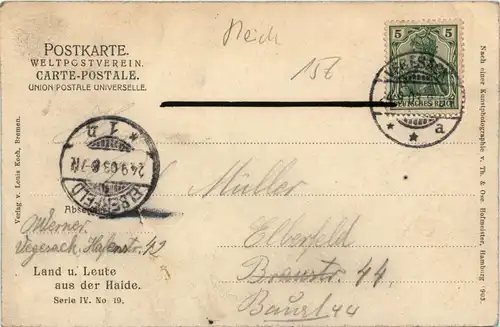 Reich
156
POSTKARTE.
WELTPOSTVEREIN.
CARTE-POSTALE.
UNION POSTALE UNIVERSELLE.
5 5
DEUTSCHES REICH
VEGESACK
a
* 1 n
24.9.03.6-7N
ELBERFELD
Müller
Elberfeld
Braustr. 44,
Baustr 44
Abse
Werner
Vegesack, Hafenstr. 42
Land u. Leute
aus der Haide.
Serie IV. No 19.
Verlag v. Louis Koch, Bremen.
Nach einer Kunstphotographie v. Th. & Osc. Hofmeister, Hamburg 903.